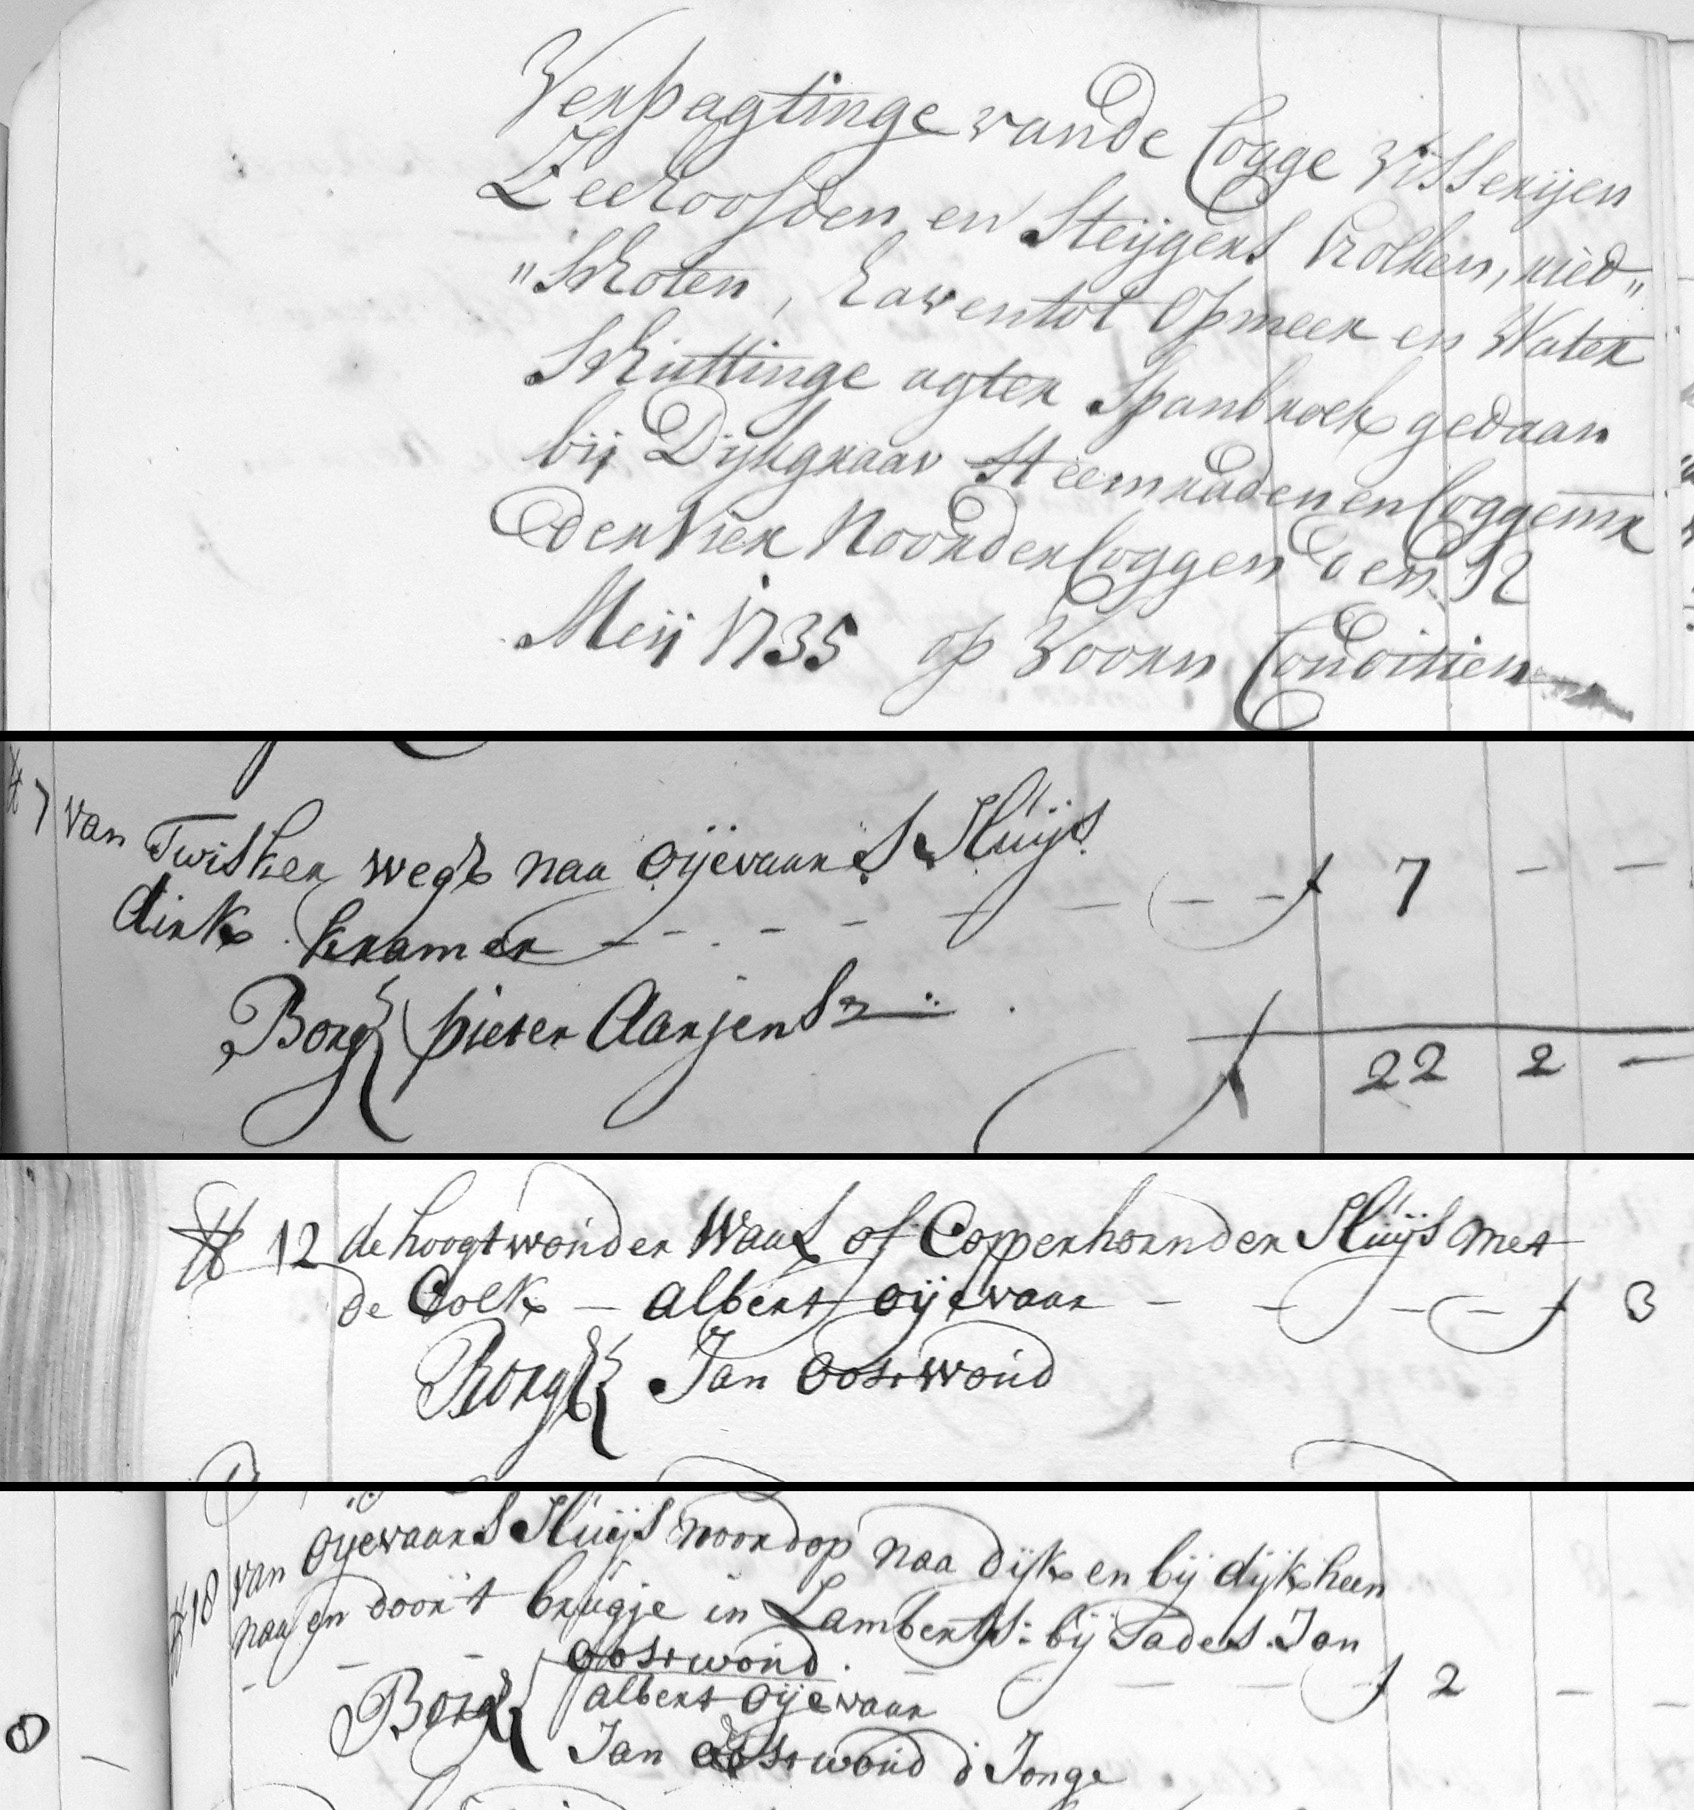 Verpagtinge vande Cogge Visserijen
Zeehoofden en Steijgers Colken, ried„
„Schoten, haventot Opmeer en Water
Schuttinge agter Spanbroek gedaan
bij Dijkgraav Heemraden en Coggemr
der Vier Noorder Coggen den 12
Meij 1735 op Voorn Conditien
# 7 van Twisker weg naa oijevaars Sluijs
dirk kramer - - - - - - - - ƒ 7 - -
Borg pieter Aarjensz
ƒ 22 2 -
# 12 de hoogtwouder Waal of Copperhornder Sluijs met
de Colk - albert oijevaar - - - - ƒ 3
Borg Jan oostwoud
# 18 van oijevaars Sluijs noordop naa dijk en bij dijk heen
naa en door't brugje in Lamberts: bij Sades. Jan
oostwoud. - - - - ƒ 2 - -
Borg albert oijevaar
8 - Jan oostwoud d Jonge